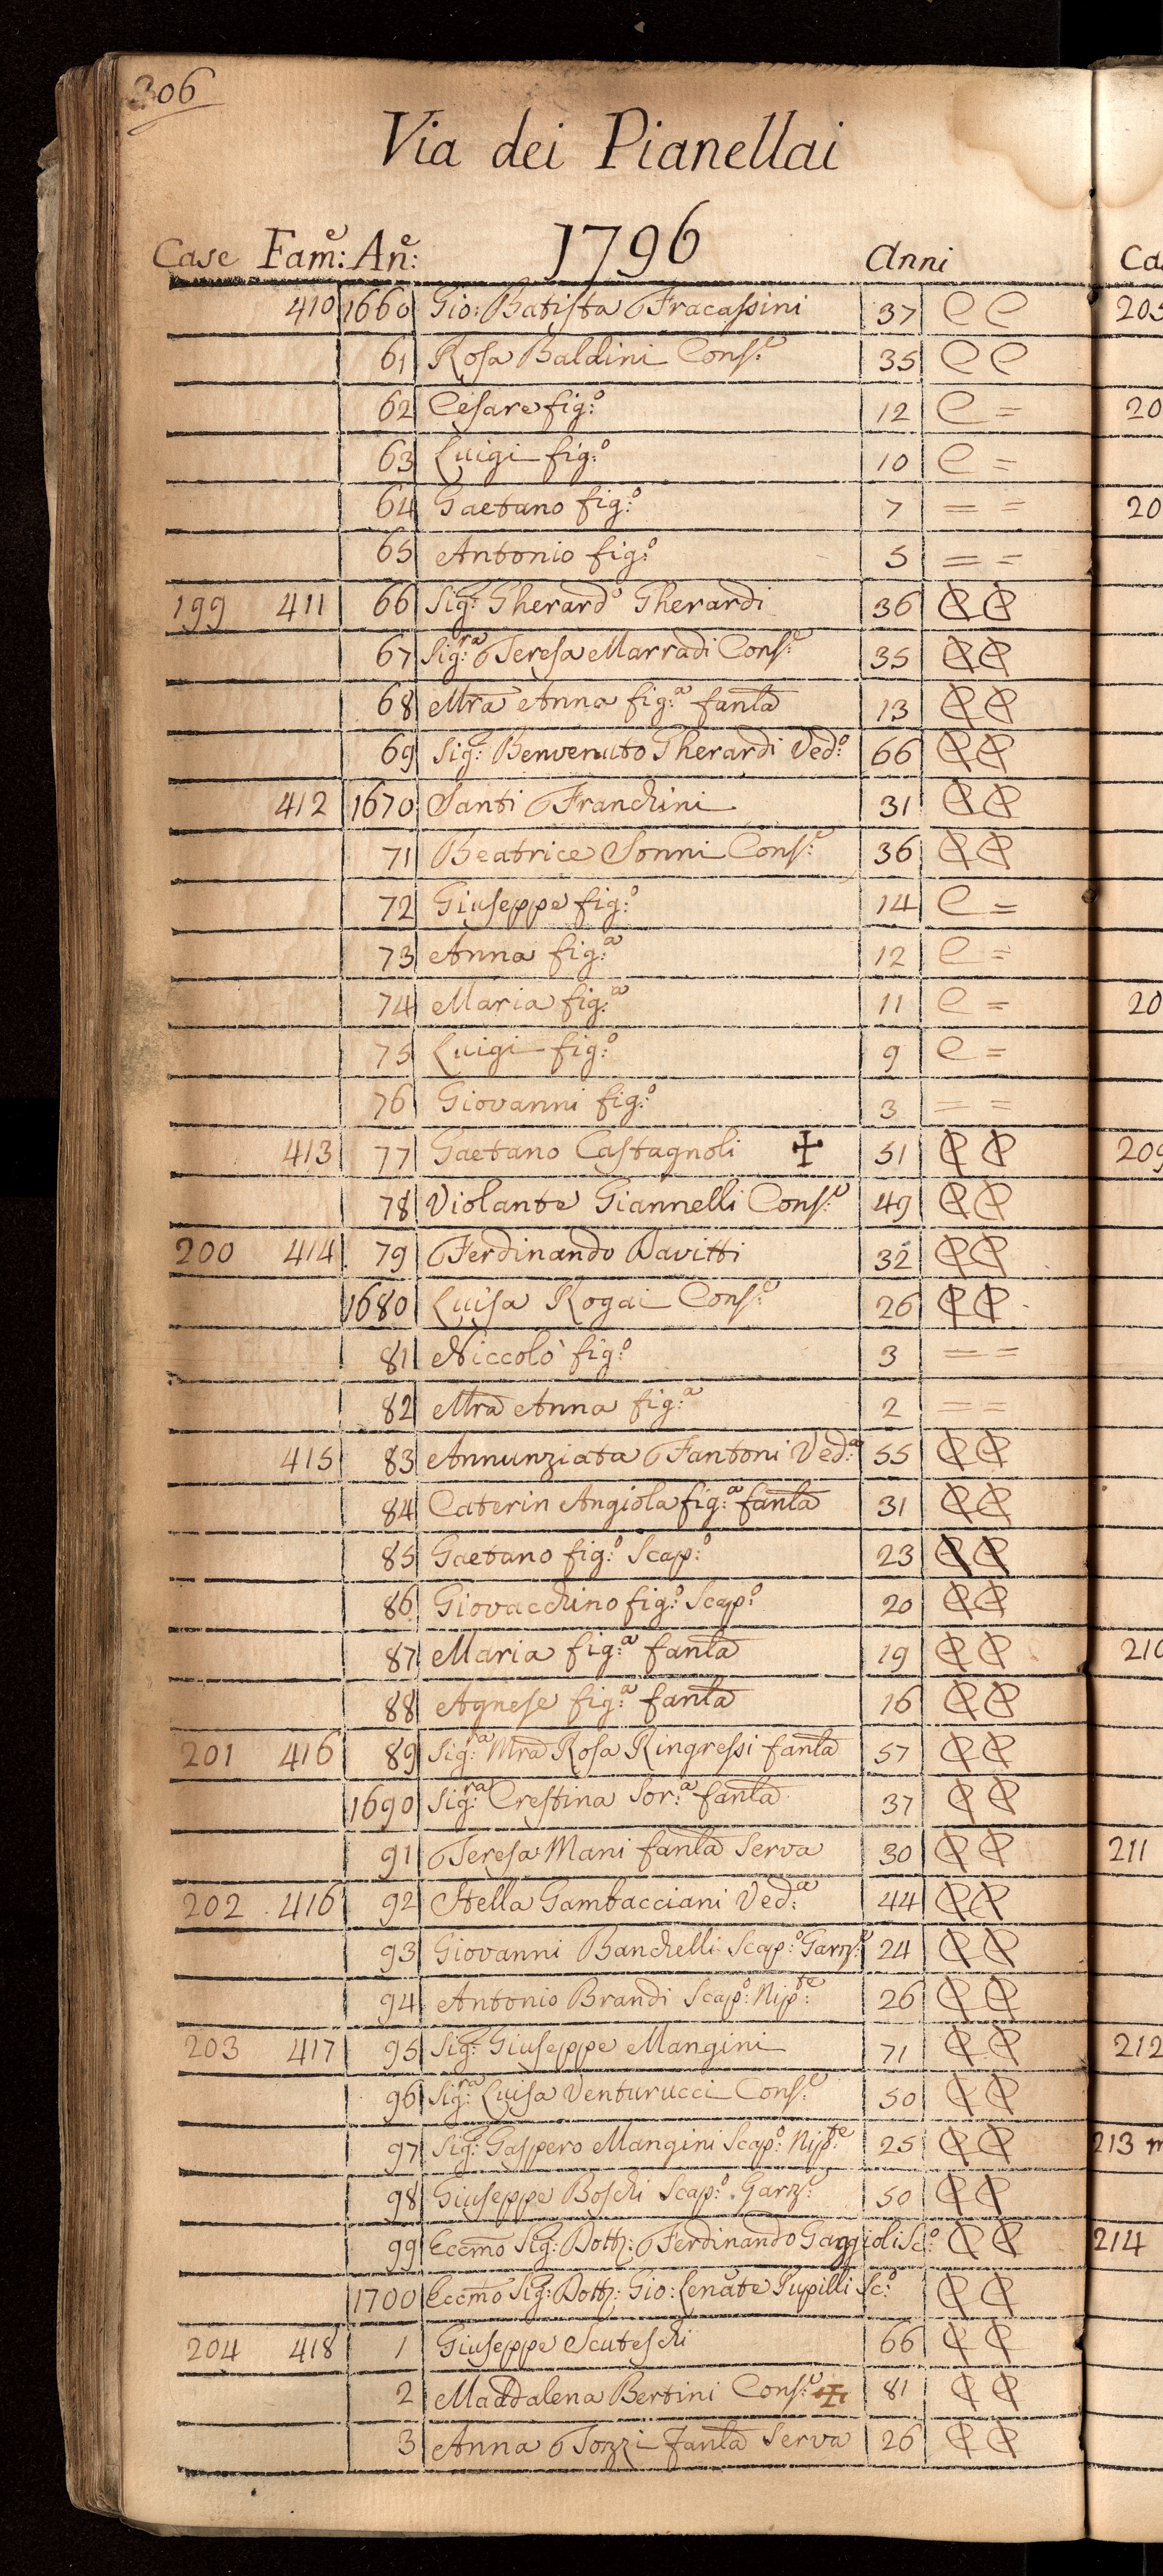 306
Via dei Pianellai
1796
Case Fam:e An:e Anni
410 1660 Gio: Batista Fracassini 37 C C
61 Rosa Baldini Cons:e 35 C C
62 Cesare fig:o 12 C =
63 Luigi fig:o 10 C =
64 Gaetano fig:o 7 = =
65 Antonio fig:o 5 = =
199 411 66 Sig:e Gherardo Gherardi 36 C C
67 Sig:ra Teresa Marradi Cons:e 35 C C
68 Mra Anna fig:a fanla 13 C C
69 Sig:e Benvenuto Gherardi Ved:o 66 C C
412 1670 Santi Franchini 31 C C
71 Beatrice Sonni Cons:e 36 C C
72 Giuseppe fig:o 14 C =
73 Anna fig:a 12 C =
74 Maria fig:a 11 C =
75 Luigi fig:o 9 C =
76 Giovanni fig:o 3 = =
413 77 Gaetano Castagnoli ✝ 51 C C
78 Violante Giannelli Cons:e 49 C C
200 414 79 Ferdinando Davitti 32 C C
1680 Luisa Rogai Cons:e 26 C C
81 Niccolò fig:o 3 = =
82 Mra Anna fig:a 2 = =
415 83 Annunziata Fantoni Ved:a 55 C C
84 Caterin Angiola fig:a fanla 31 C C
85 Gaetano fig:o Scap:o 23 C C
86 Giovacchino fig:o Scap:o 20 C C
87 Maria fig:a fanla 19 C C
88 Agnese fig:a fanla 16 C C
201 416 89 Sig:ra Mra Rosa Ringressi fanla 57 C C
1690 Sig:ra Crestina Sor:a fanla 37 C C
91 Teresa Mani fanla Serva 30 C C
202 416 92 Stella Gambacciani Ved:a 44 C C
93 Giovanni Banchelli Scap:o Garz:e 24 C C
94 Antonio Brandi Scap:o Nip:te 26 C C
203 417 95 Sig:e Giuseppe Mangini 71 C C
96 Sig:ra Luisa Venturucci Cons:e 50 C C
97 Sig:e Gaspero Mangini Scap:o Nip:te 25 C C
98 Giuseppe Boschi Scap:o Garz:e 50 C C
99 Eccmo Sig:e Dott: Ferdinando Gaggioli Sc:o C C
1700 Eccmo Sig:e Dott: Gio: Pupilli Sc:o C C
204 418 1 Giuseppe Scuteschi 66 C C
2 Maddalena Bertini Cons:e ✝ 81 C C
3 Anna Tozzi fanla Serva 26 C C
209
211
212
213
214